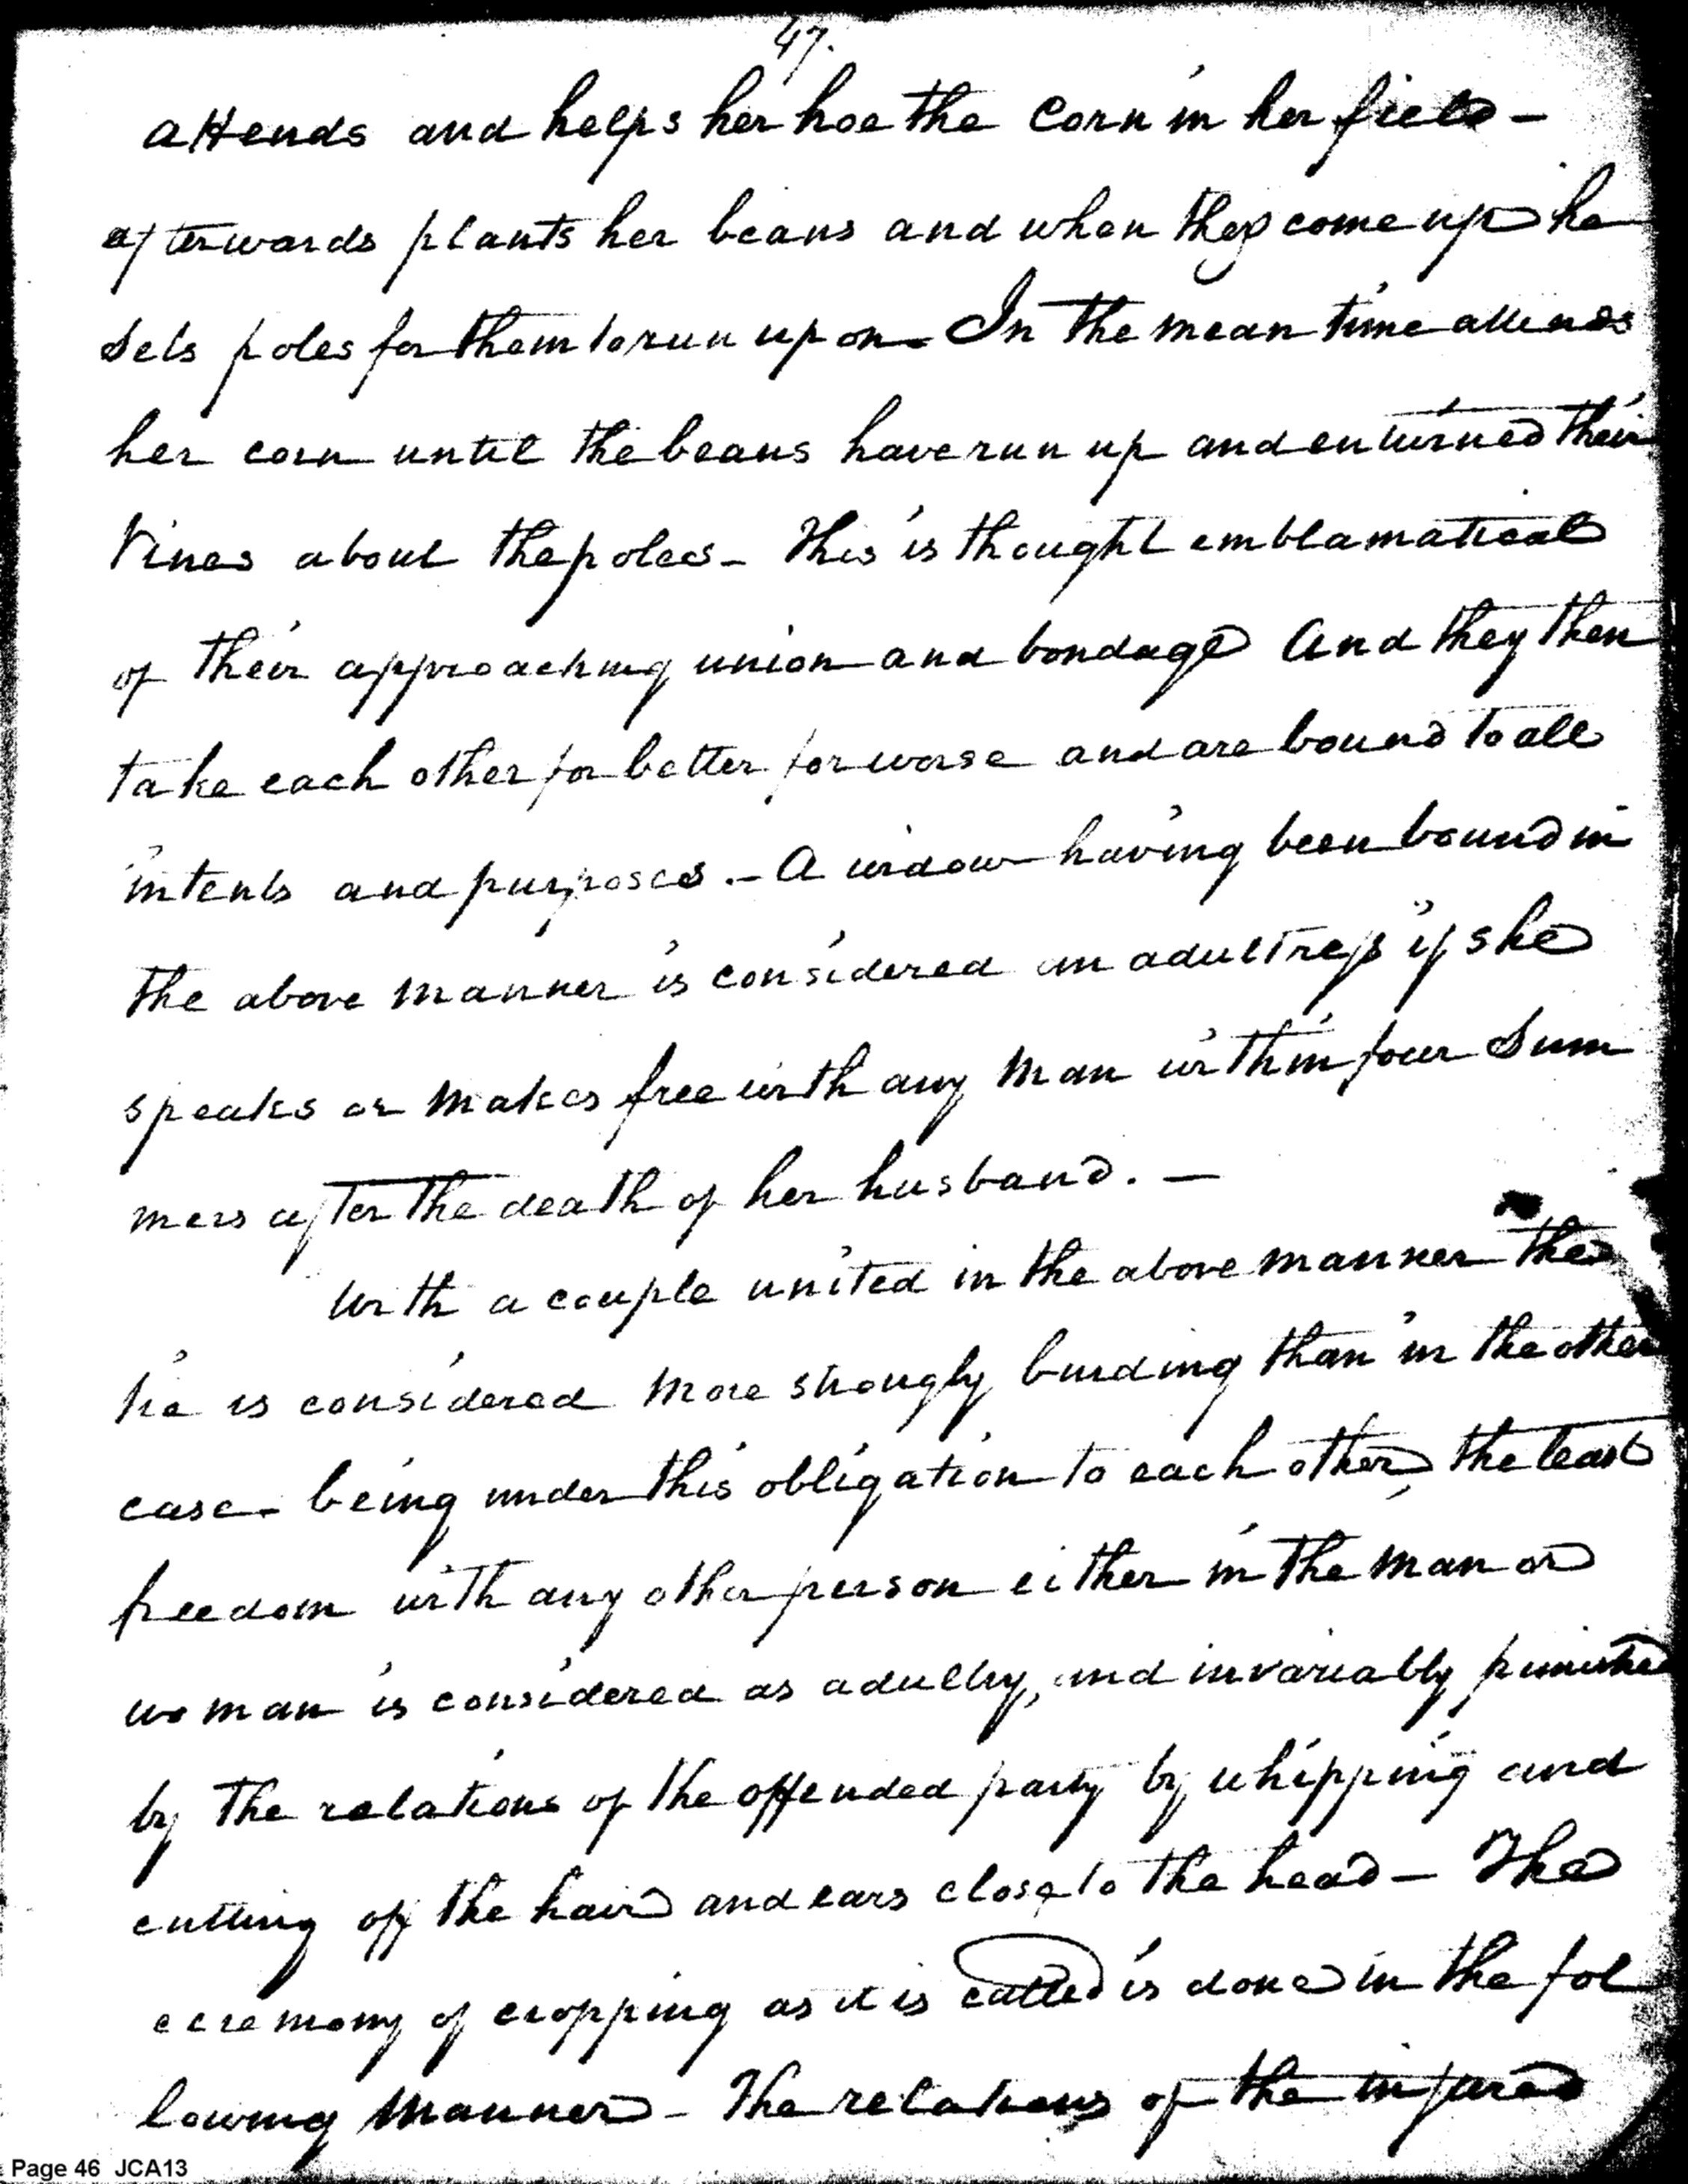 47.
attends and helps her hoe the Corn in her field -
afterwards plants her beans and when they come up he
sets poles for them to run up on - In the mean time attends
her corn until the beans have run up and enturned their
Vines about the poles - This is thought emblamatical
of their approaching union and bondage And they then
take each other for better for worse and are bound to all
intents and purposes. - A widow having been bound in
the above manner is considered an adultress if she
speaks or makes free with any man within four Sum
mers after the death of her husband. -
With a couple united in the above manner the
tie is considered more strongly binding than in the other
case - being under this obligation to each other, the least
freedom with any other person either in the man or
woman is considered as adultry, and invariably punished
by the relations of the offended party by whipping and
cutting off the hair and ears close to the head - The
ceremony of cropping as it is called is done in the fol
lowing manner - The relations of the injured
Page 46 JCA13